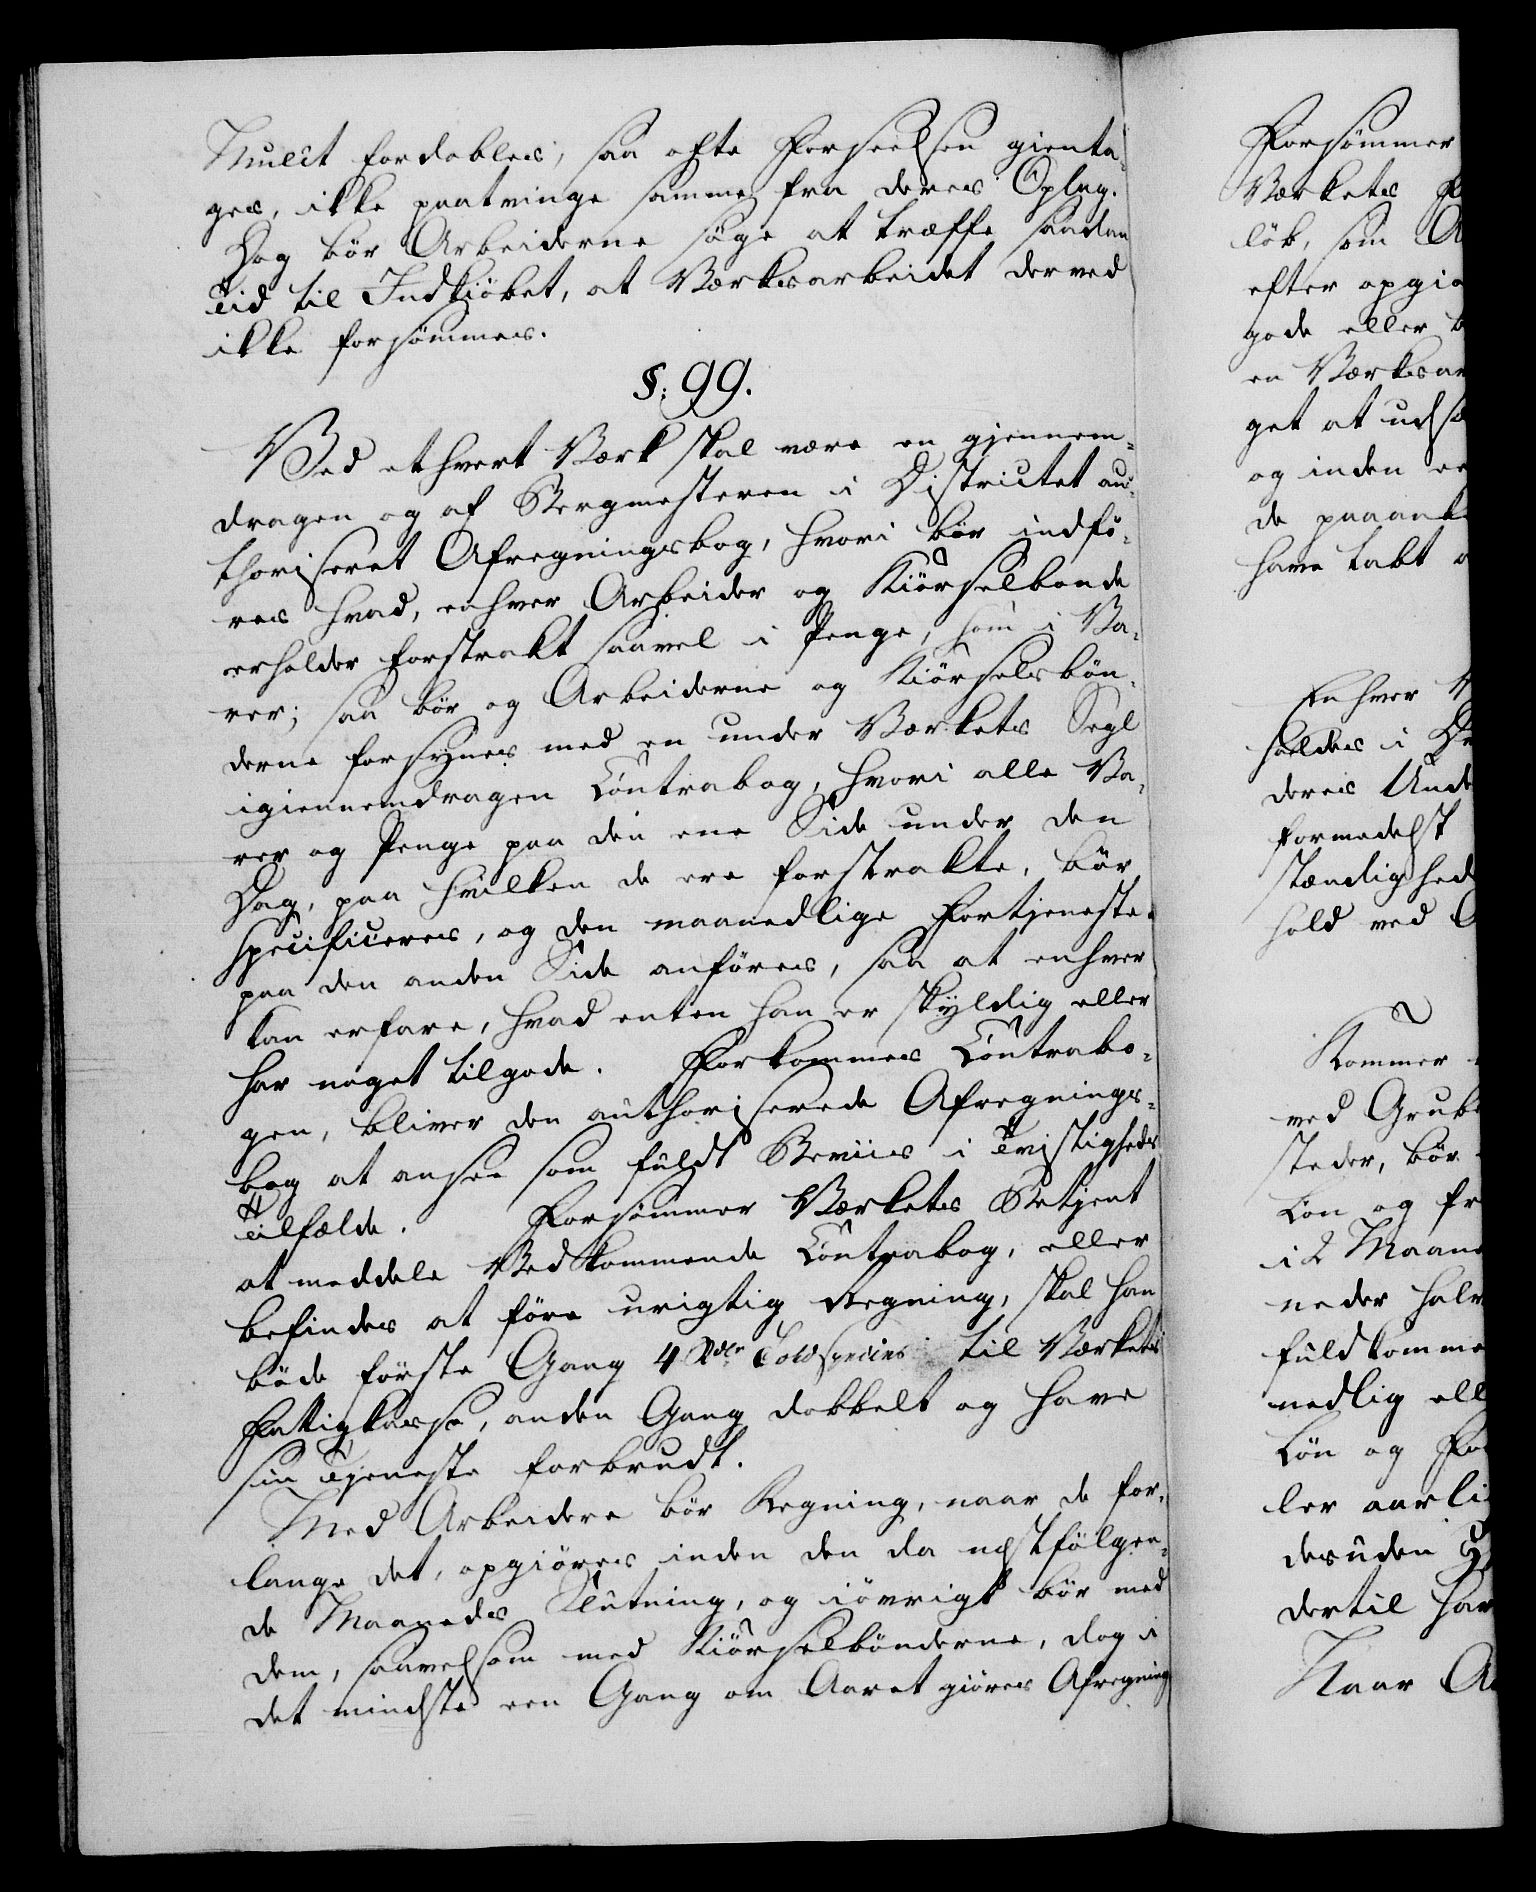 Mulct fordobles, saa ofte Forseelsen gienta-
ges, ikke paatvinge samme fra deres Oplag.
Dog bör Arbeiderne söge at træffe saadan
Tid til Indkiöbet, at Værksarbeidet derved
ikke forsömmes.
§: 99.
Ved ethvert Værk skal være en gjennem-
dragen og af Bergmesteren i Districtet au-
thoriseret Afregningsbog, hvori bör indfö-
res hvad, enhver Arbeider og Kiörselbonde
erholder forstrakt saavel i Penge, som i Va-
rer; saa bör og Arbeiderne og Kiörselsbön-
derne forsynes med en under Værkets Segl
igiennemdragen Contrabog, hvori alle Va-
rer og Penge paa den ene Side under den
Dag, paa hvilken de ere forstrakte, bör
specificeres, og den maanedlige Fortjeneste
paa den anden Side anföres, saa at enhver
kan erfare, hvad enten han er skyldig eller
har noget tilgode. Forkommes Contrabo-
gen, bliver den authoriserede Afregnings-
bog at ansee som fuldt Beviis i Tvistigheds
Tilfælde. Forsömmer Værkets Betjent
at meddele Vedkommende Contrabog, eller
befindes at före urigtig Regning, skal han
böde förste Gang 4 Rdlr Sölvspecies til Værkets
Fattigkasse, anden Gang dobbelt og have
sin Tjeneste forbrudt.
Med Arbeidere bör Regning, naar de for-
lange det, opgiöres inden den da næstfölgen-
de Maaneds Slutning, og iövrigt bör med
dem, saavelsom med Kiörselbönderne, dog i
det mindste een Gang om Aaret giöres Afregning
Forsömmer
Værkets
löb, som
efter opgiø
gode eller
en Værksar
get at udsæ
og inden
de paaank
have tabt
Enhver
holdes i
deres Unde
formedelst
stændighed
hold ved
Kommer
ved Grube
steder, bör
Lön og fr
i 2 Maane
neder halv
fuldkomme
nedlig ell
Lön og
ler aarli
desuden
dertil har
Naar